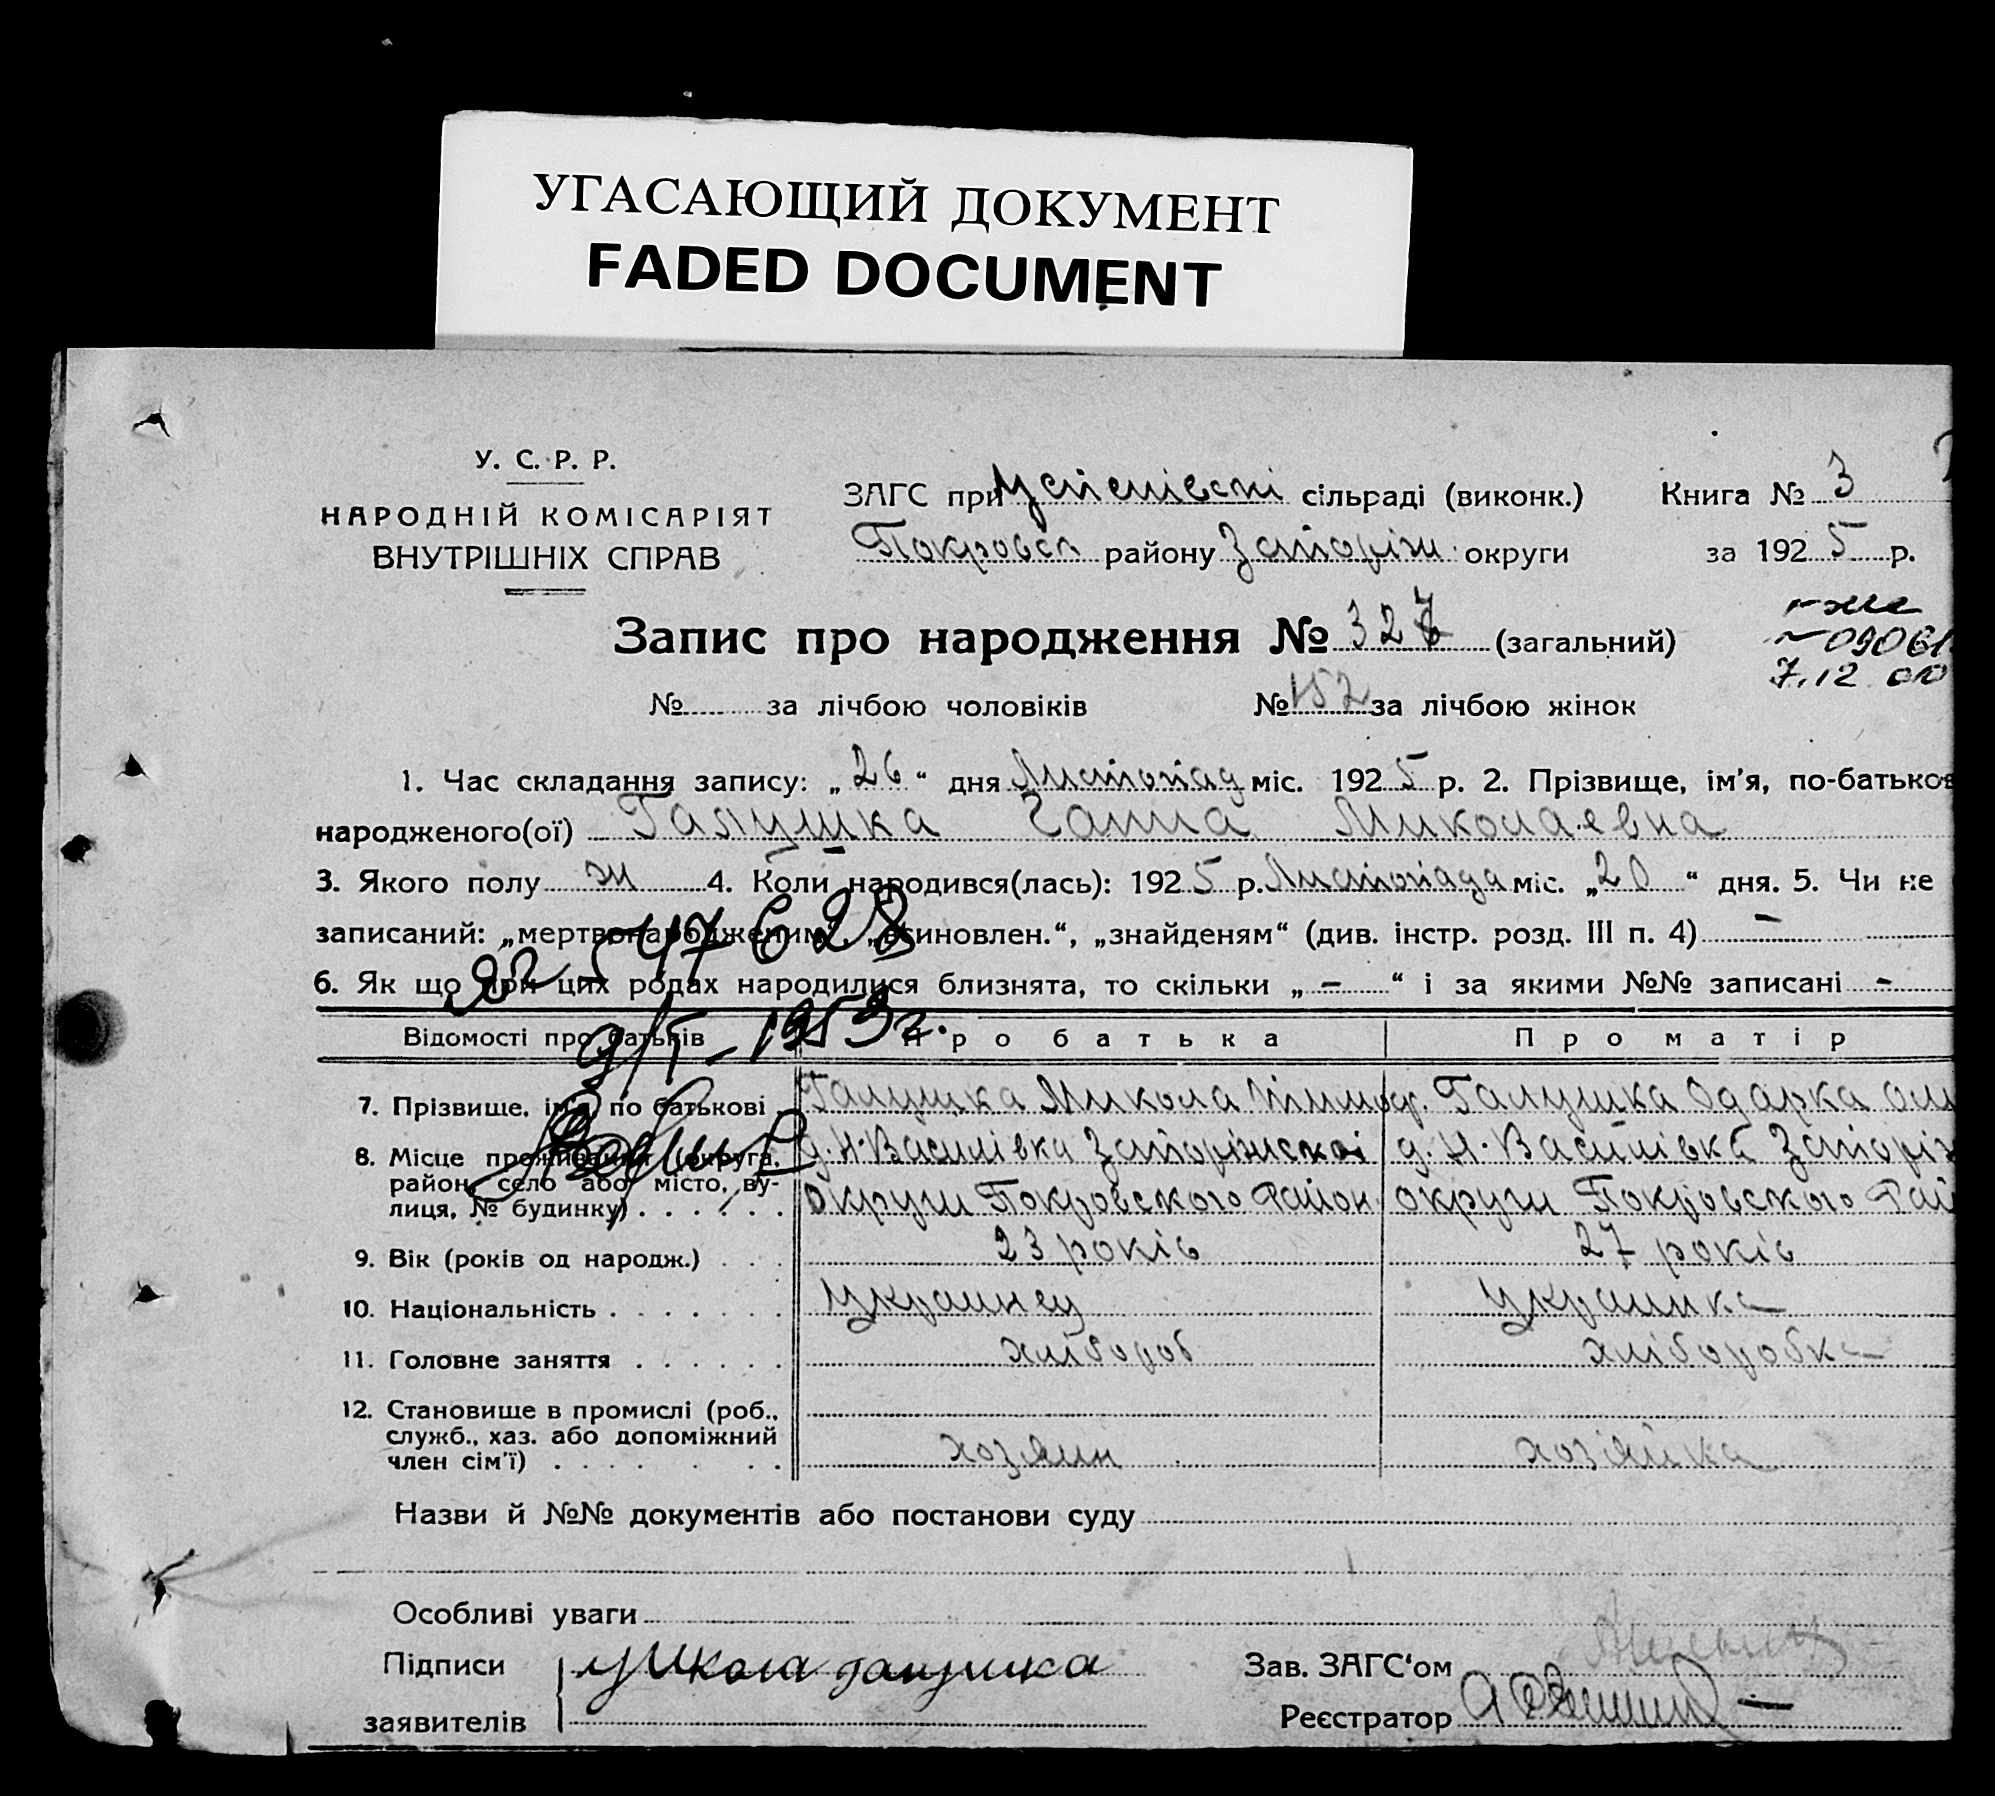 УГАСАЮЩИЙ ДОКУМЕНТ
FADED DOCUMENT
У. С. Р. Р.
НАРОДНІЙ КОМІСАРІЯТ
ВНУТРІШНІХ СПРАВ
ЗАГС при Успенівскі сільраді (виконк.) Книга № 3
Покровск району Запоріж округи за 1925 р.
Запис про народження № 327 (загальний)
7.12
№ за лічбою чоловіків № 152 за лічбою жінок
1. Час складання запису: „26“ дня Листопад міс. 1925 р. 2. Прізвище, ім'я, по-батьков
народженого(ої) Галушка Ганна Миколаевна
3. Якого полу ж 4. Коли народився(лась): 1925 р. Листопада міс. „20“ дня. 5. Чи не
записаний: „мертвонародженим“, „всиновлен.“, „знайденям“ (див. інстр. розд. III п. 4) —
6. Як що при цих родах народилися близнята, то скільки „—“ і за якими №№ записані —
547628
9/5-1953 г.
Відомості про батьків Про батька Про матір
7. Прізвище, ім'я, по батькові Галушка Микола Тимоф. Галушка Одарка
8. Місце проживання (округа, район, село або місто, вулиця, № будинку) д. Н-Василівка Запоріжскої округи Покровского Район д. Н-Василівка Запоріж округи Покровского Рай
9. Вік (років од народж.) 23 років 27 років
10. Національність украинец украинка
11. Головне заняття хлібороб хліборобка
12. Становище в промислі (роб., служб., хаз. або допоміжний член сім'ї) хозяин хозяйка
Назви й №№ документів або постанови суду
Особливі уваги
Підписи заявителів Микола галушка
Зав. ЗАГС'ом
Реєстратор